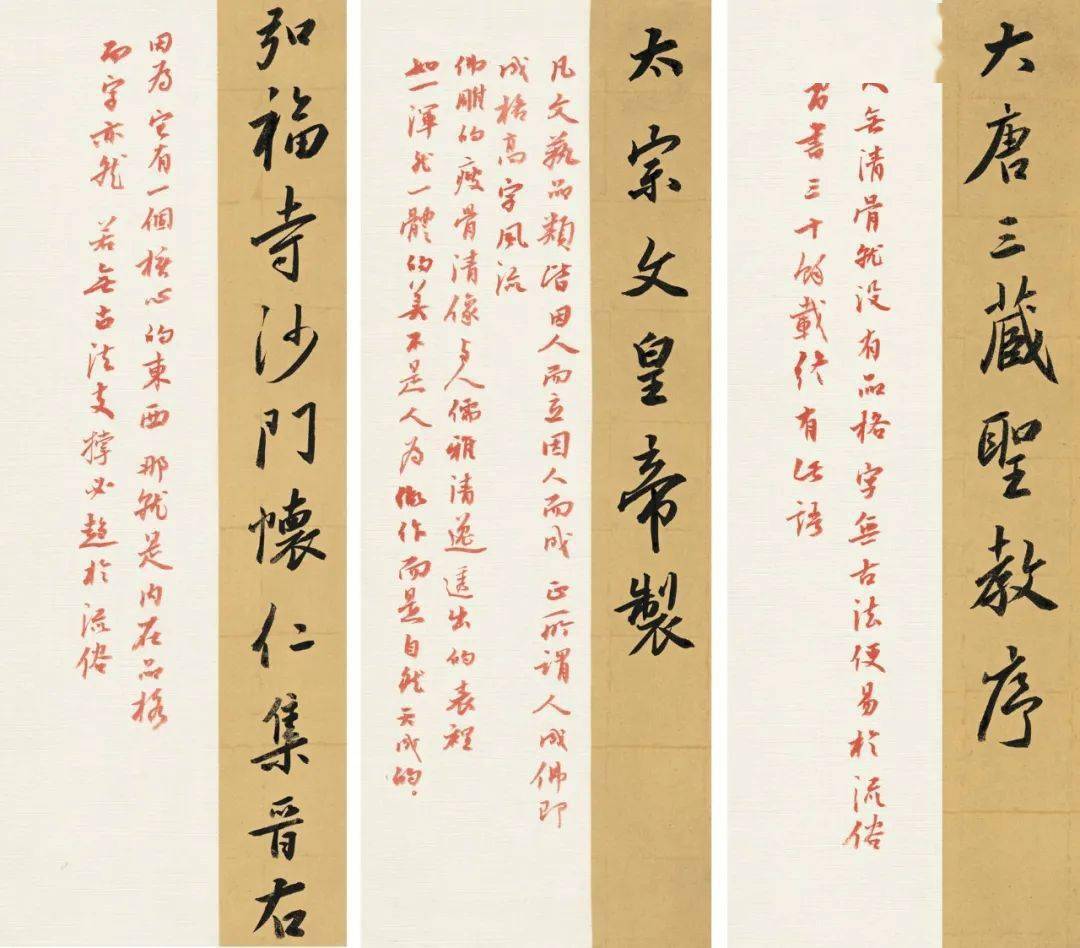 大唐三藏聖教序
人無清骨就没有品格字無古法便易於流俗
習書三十餘載終有此語
太宗文皇帝製
凡文藝品類皆因人而立因人而成正所謂人成佛即
成格高字風流
佛眼的瘦骨清像与人儒雅清逸透出的表裡
如一渾然一體的美不是人为做作而是自然天成的
弘福寺沙門懷仁集晋右
因为它有一個核心的東西那就是内在品格
而字亦然若無古法支撑必趋於流俗